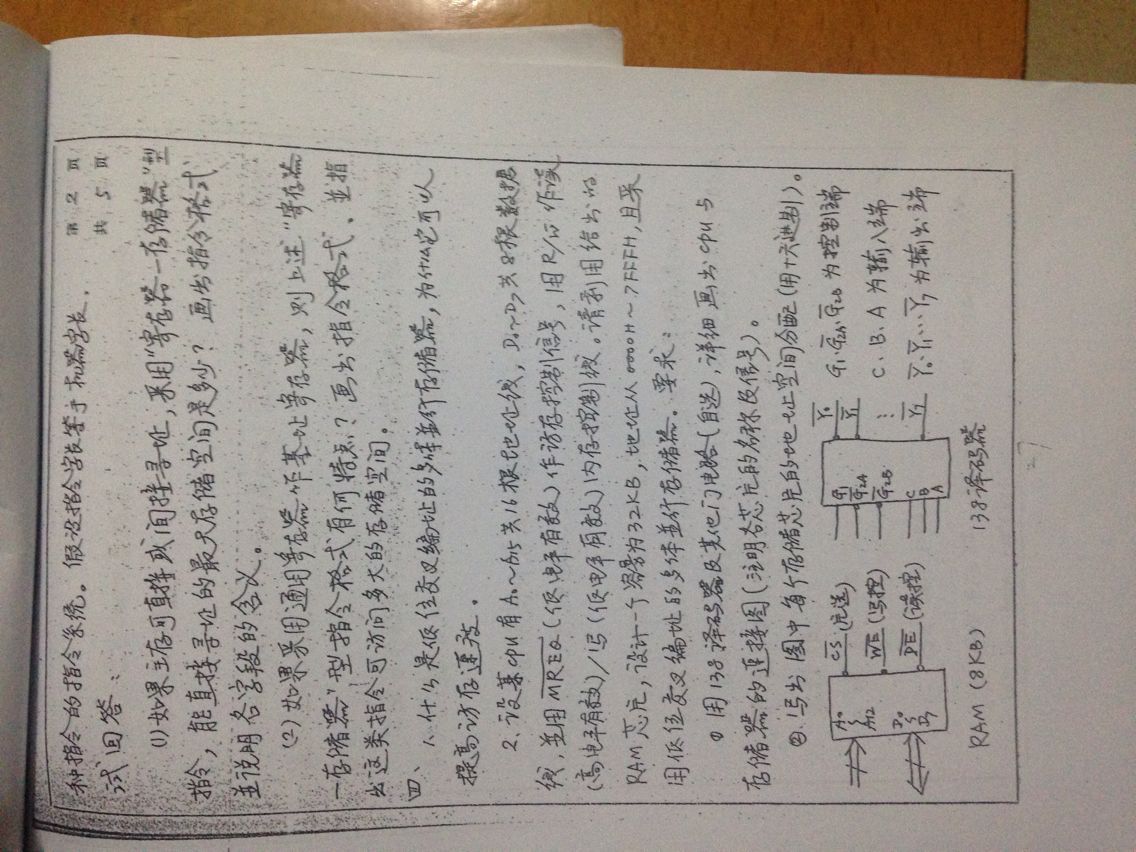 第 2 页
共 5 页
种指令的指令系统。假设指令字长等于机器字长。
试回答：
(1)如果主存可直接或间接寻址，采用"寄存器—存储器"型
指令，能直接寻址的最大存储空间是多少？画出指令格式
並说明各字段的含义。
(2)如果采用通用寄存器作基址寄存器，则上述"寄存器
—存储器"型指令格式有何特点？画出指令格式、並指
出这类指令可访问多大的存储空间。
四、1.什么是低位交叉编址的多体並行存储器，为什么它可以
提高访存速效。
2.设某CPU有A0~A15共16根地址线，D0~D7共8根数据
线，並用MREQ(低电平有效)作访存控制信号，用R/W作读
(高电平有效)/写(低电平有效)内存控制线。请利用给出的
RAM芯片，设计一个容量为32KB，地址从0000H~7FFFH，且采
用低位交叉编址的多体並行存储器。要求：
① 用138译码器及其他门电路(自选)，详细画出CPU与
存储器的连接图(注明各芯片的名称及信号)。
②.写出图中每个存储芯片的地址空间分配(用十六进制)。
A0
A12
D0
D7
CS(片选)
WE(写控)
OE(读控)
RAM(8KB)
G1
G2A
G2B
C
B
A
Y0
Y1
Y7
138译码器
G1.G2A.G2B为控制端
C.B.A为输入端
Y0.Y1…Y7为输出端